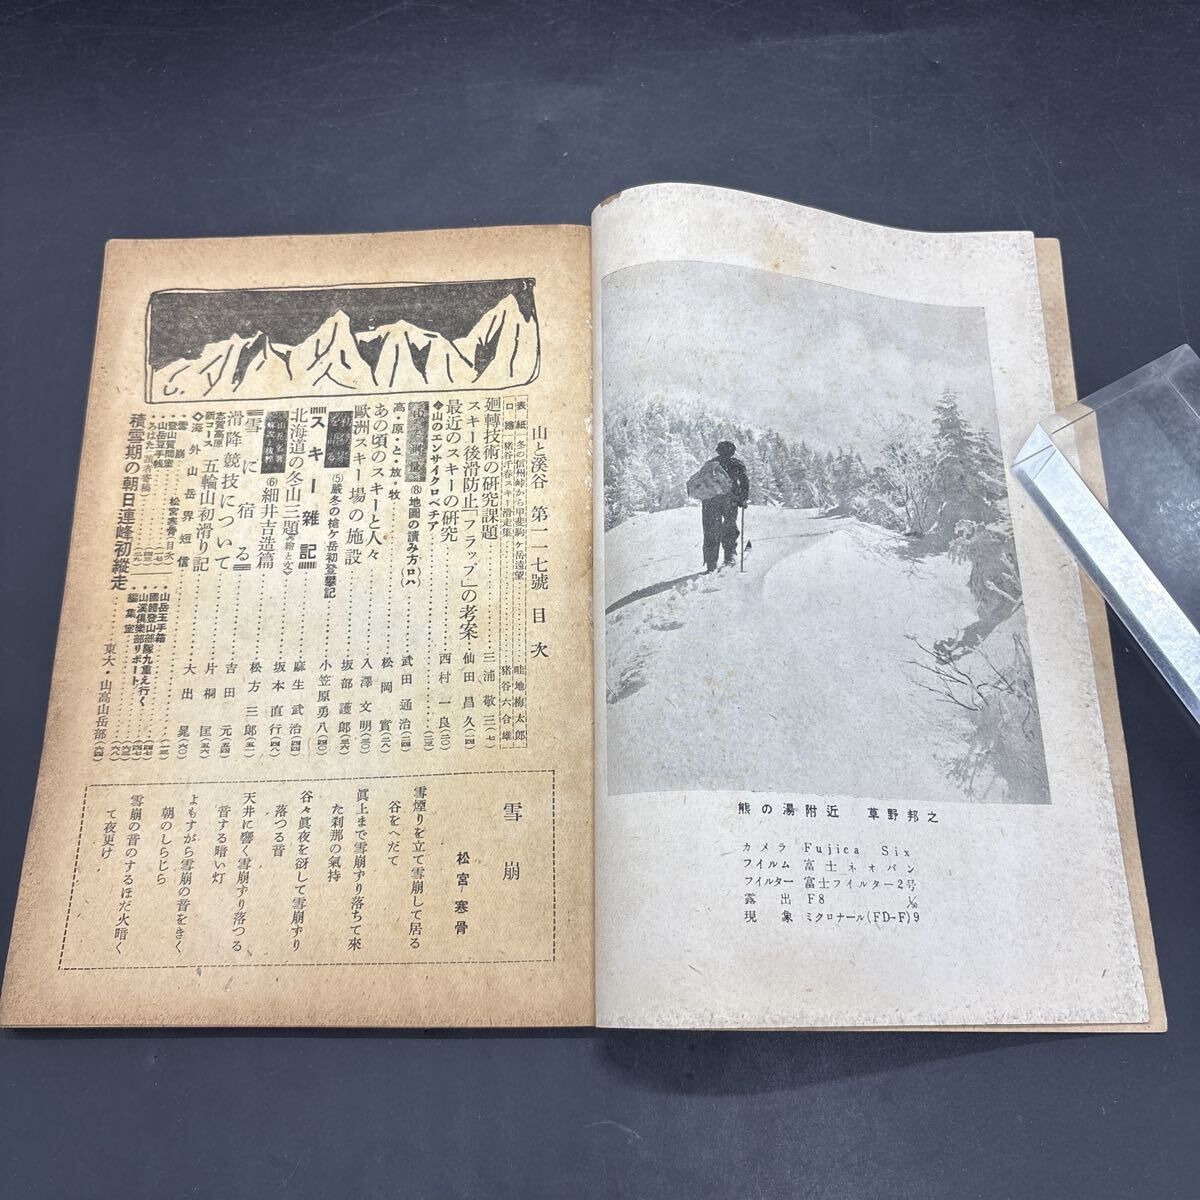 山と溪谷 第一一七號 目次
表紙 冬の信州峠から甲斐駒ヶ岳遠望 畦地梅太郎
口繪 猪谷千春スキー滑走集 猪谷六合雄
廻轉技術の研究課題 三浦敬三(七)
スキー後滑防止「フラップ」の考案 仙田昌久(一四)
最近のスキーの研究 西村一良(二〇)
◆山のエンサイクロペヂア (二三)
⑧地圖の讀み方(ロハ) 武田通治(二四)
高・原・と・放・牧 松岡實(二八)
あの頃のスキーと人々 入澤文明(三〇)
歐洲スキー場の施設 坂部護郎(三六)
⑤嚴冬の槍ヶ岳初登攀記 小笠原勇八(四〇)
スキー雜記 麻生武治(四四)
北海道の冬山三題《繪と文》 坂本直行(四八)
山岳名著解説と抜粋 ⑥細井吉造篇 松方三郎(五一)
雪に宿る 吉田元(五四)
滑降競技について 片桐匡(五六)
志賀高原新コース 五輪山初滑り記 大出晃(六〇)
◇海外山岳界短信
雪崩 松宮寒骨(目次)
登山質問室 (一七)
山岳豆手帳 (四三)
ろはた(讀者寄稿) (二九)
山岳玉手箱 (一三)
國鐵登山部隊九重え行く (四七)
山溪倶楽部リポート (六三)
編集室 (六八)
積雪期の朝日連峰初縱走 東大・山高山岳部(六四)
雪崩
松宮寒骨
雪煙りを立て雪崩して居る
谷をへだて
眞上まで雪崩ずり落ちて來
た刹那の氣持
谷々眞夜を谺して雪崩ずり
落つる音
天井に響く雪崩ずり落つる
音する暗い灯
よもすがら雪崩の音をきく
朝のしらじら
雪崩の音のするほだ火暗く
て夜更け
熊の湯附近 草野邦之
カメラ Fujica Six
フイルム 富士ネオパン
フイルター 富士フイルター2号
露出 F8 1/50
現象 ミクロナール(FD-F)9